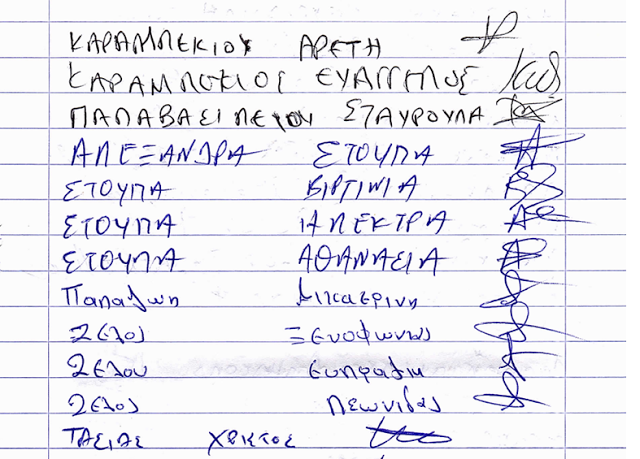 ΚΑΡΑΜΠΕΚΙΟΥ ΑΡΕΤΗ
ΚΑΡΑΜΠΕΚΙΟΣ ΕΥΑΓΓΕΛΟΣ
ΠΑΠΑΒΑΣΙΛΕΙΟΥ ΣΤΑΥΡΟΥΛΑ
ΑΛΕΞΑΝΔΡΑ ΣΤΟΥΠΑ
ΣΤΟΥΠΑ ΒΙΡΓΙΝΙΑ
ΣΤΟΥΠΑ ΗΛΕΚΤΡΑ
ΣΤΟΥΠΑ ΑΘΑΝΑΣΙΑ
Παπαζωη Αικατερινη
Ζελος Ξενοφωντας
Ζελου Ευπραξια
Ζελος Λεωνιδας
ΤΑΣΙΑΣ